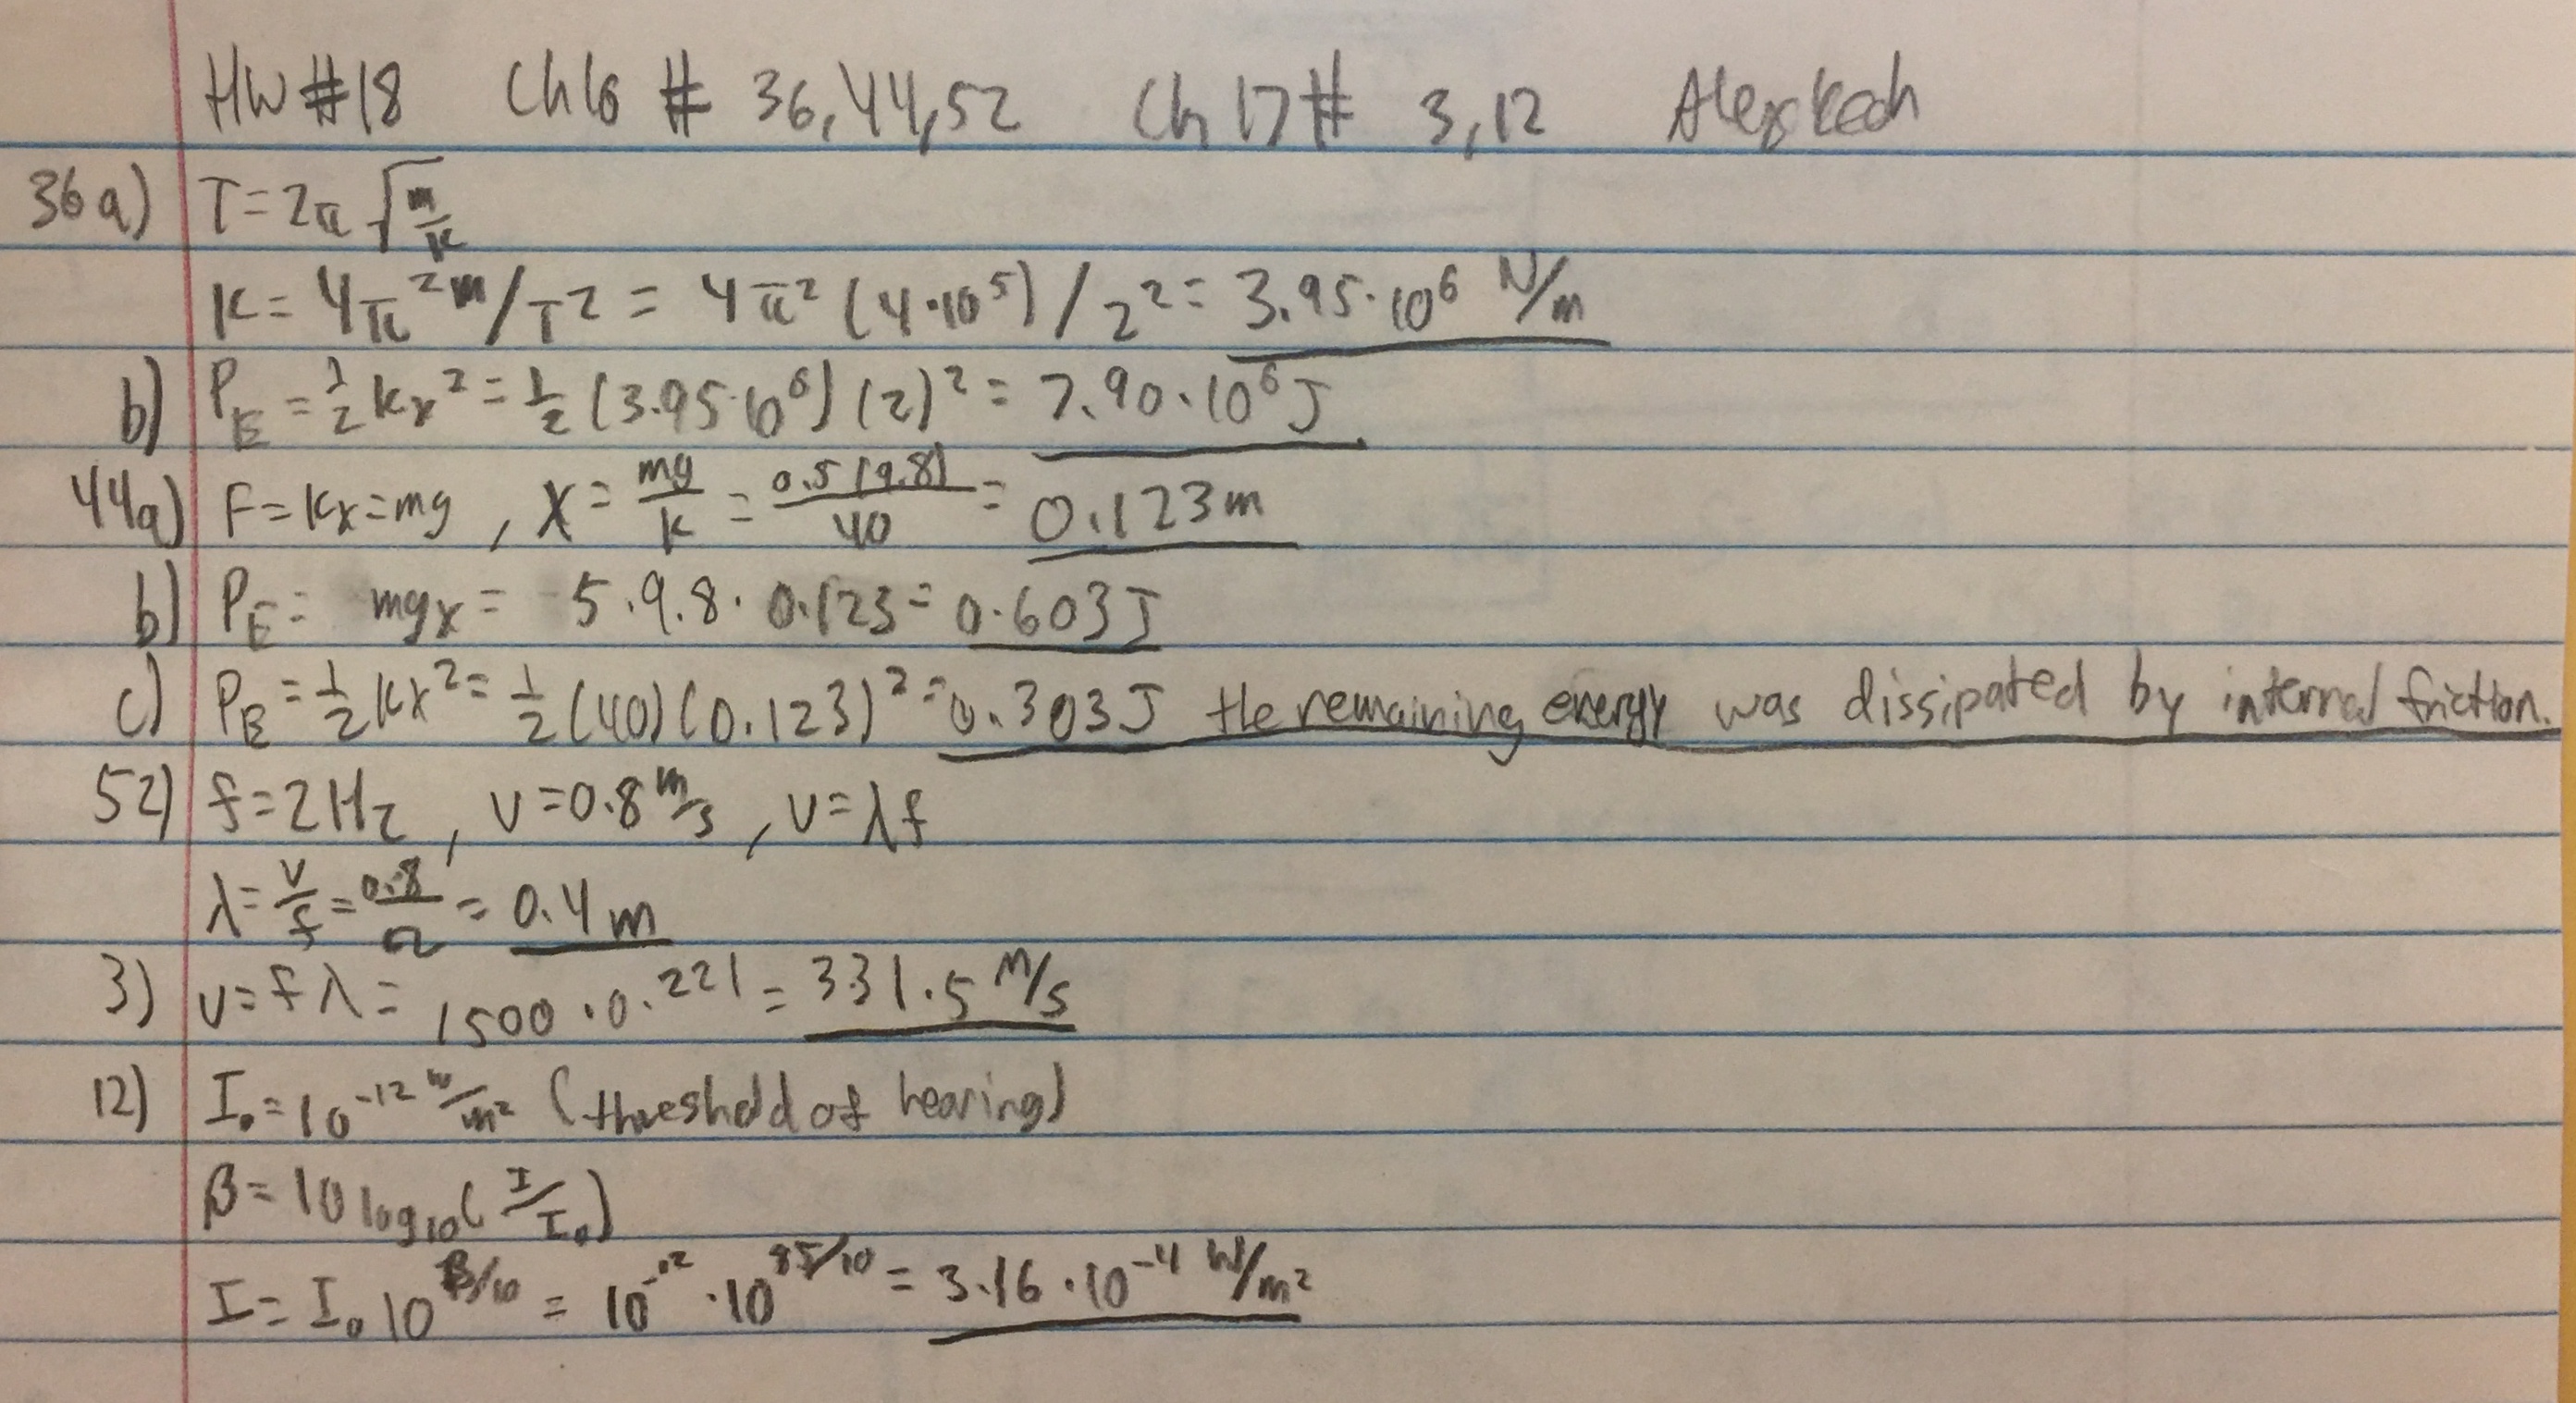 HW #18 Ch16 # 36,44,52 Ch 17 # 3,12 Alex Kech
36a) T=2π √(m/k)
K= 4π²m/T² = 4π² (4·10⁵) / 2² = 3.95·10⁶ N/m
b) P_E = 1/2 kx² = 1/2 (3.95·10⁶) (2)² = 7.90·10⁶ J
44a) F=Kx=mg , X= mg/k = 0.5(9.8)/40 = 0.123m
b) P_E= mgx= 5.9.8. 0.123= 0.603J
c) P_E = 1/2 Kx² = 1/2 (40)(0.123)² = 0.303J the remaining energy was dissipated by internal friction.
52) f=2Hz , v=0.8 m/s , v=λf
λ= v/f = 0.8/2 = 0.4m
3) v=fλ= 1500·0.221 = 331.5 m/s
12) I₀=10⁻¹² w/m² (threshold of hearing)
β=10 log₁₀( I/I₀ )
I= I₀ 10^β/10 = 10⁻¹² ·10^85/10 = 3.16·10⁻⁴ W/m²